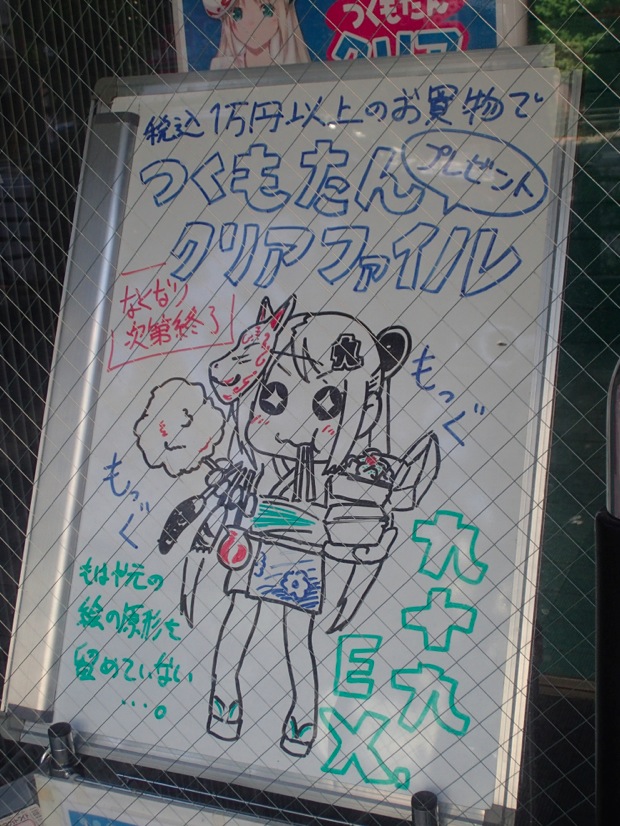 つくもたん
クリア
税込1万円以上のお買物で
つくもたん
プレゼント
クリアファイル
なくなり
次第終了
九
もっぐ
もっぐ
もはや元の
絵の原形を
留めていない
…。
九十九
EX.